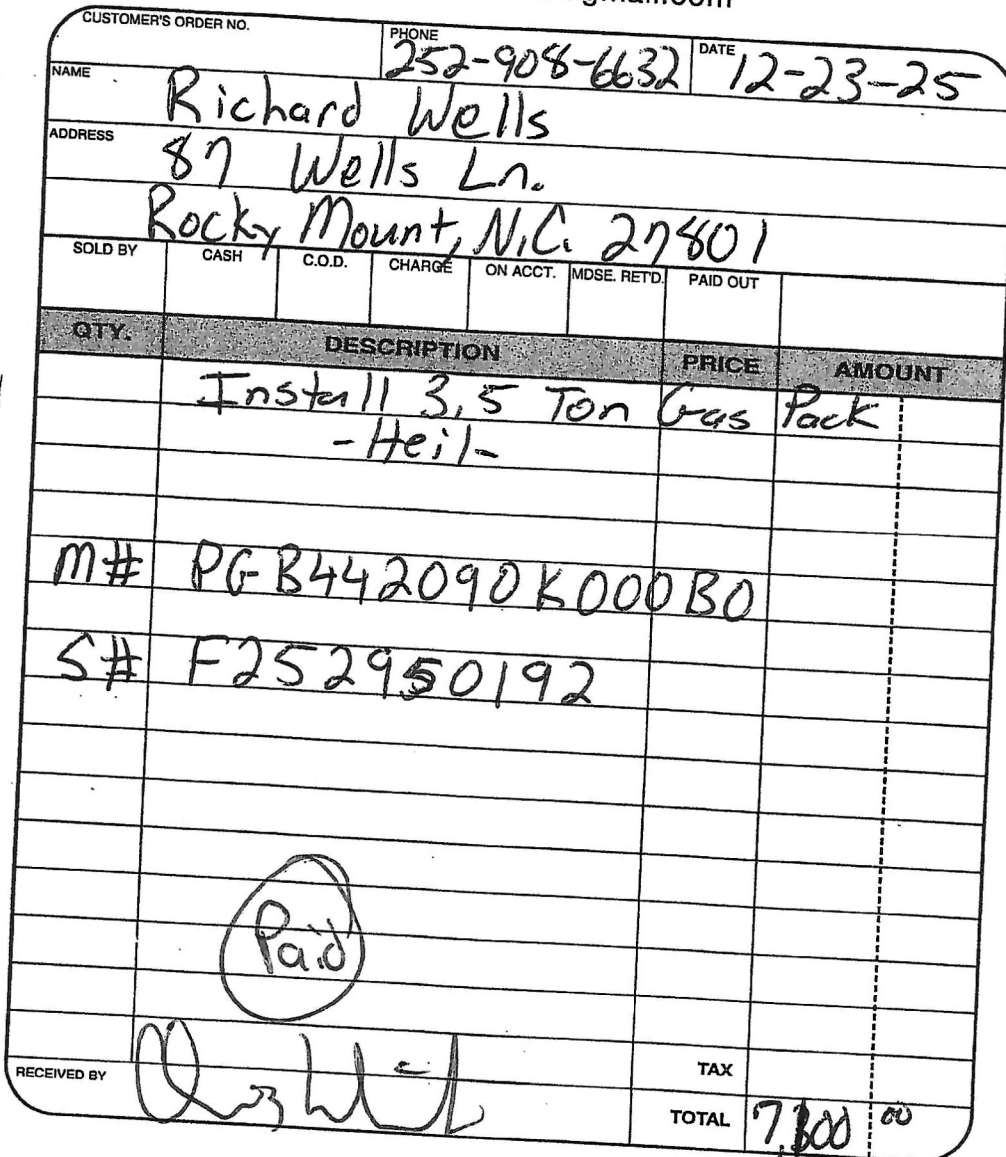 gmail.com
CUSTOMER'S ORDER NO. PHONE 252-908-6632 DATE 12-23-25
NAME Richard Wells
ADDRESS 87 Wells Ln.
Rocky Mount, N.C. 27801
SOLD BY CASH C.O.D. CHARGE ON ACCT. MDSE. RET'D. PAID OUT
QTY. DESCRIPTION PRICE AMOUNT
Install 3.5 Ton Gas Pack
-Heil-
M# PGB442090K000B0
S# F252950192
Paid
RECEIVED BY
TAX
TOTAL 00